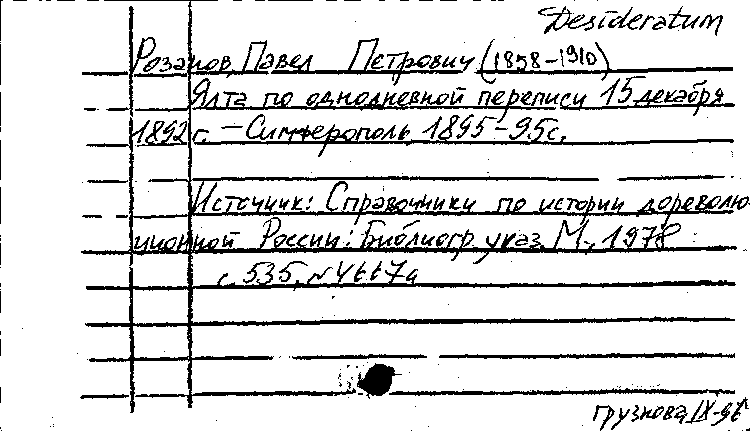 Desideratum
Розанов, Павел Петрович (1858-1910)
Ялта по однодневной переписи 15 декабря
1892 г. - Симферополь, 1895 - 95 с.
Источник: Справочники по истории дореволю-
ционной России: Библиогр. указ. М., 1978
с. 535, №
Грузнова, IX-96